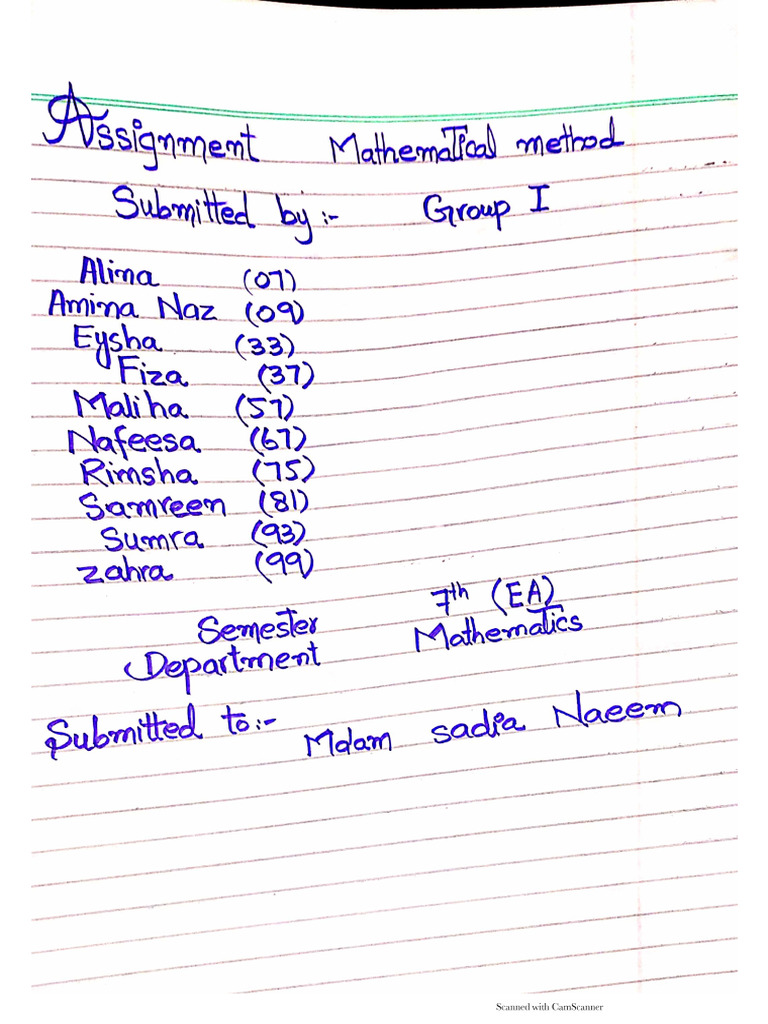 Assignment Mathematical method
Submitted by :- Group I
Alina (07)
Amina Naz (09)
Eysha (33)
Fiza (37)
Maliha (57)
Nafeesa (67)
Rimsha (75)
Samreen (81)
Sumra (93)
Zahra (99)
Semester 7th (EA)
Department Mathematics
Submitted to :- Mdam sadia Naeem
Scanned with CamScanner